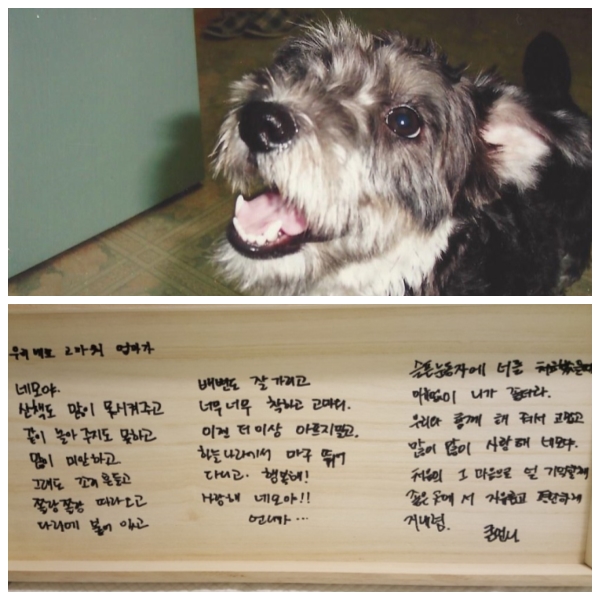 우리 네모 고마워 엄마가
네모야.
산책도 많이 못시켜주고
같이 놀아 주지도 못하고
많이 미안하고
그래도 꼬리 흔들고
쫄랑쫄랑 따라오고
다리에 붙어 있고
배변도 잘 가리고
너무너무 착하고 고마워.
이젠 더이상 아프지말고.
하늘나라에서 마구 뛰어
다니고. 행복해!
사랑해 네모야!!
언니가...
슬픈눈동자에 너를
마음이
우리와 함께 해 줘서 고맙고
많이 많이 사랑해 네모야.
처음의 그 마음으로 널 기억할께
좋은 곳에서
지내렴.
큰언니